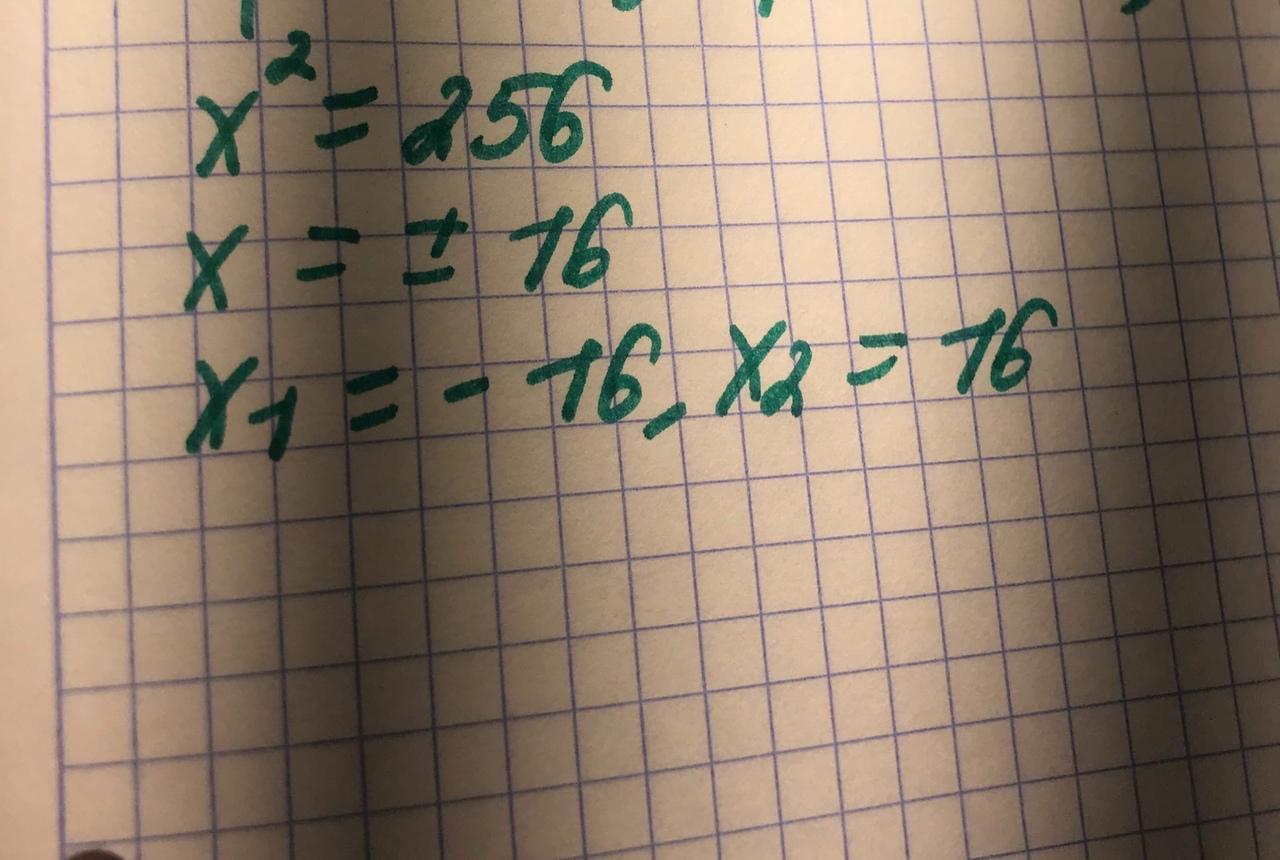 x² = 256
x = ± 16
x₁ = - 16, x₂ = 16